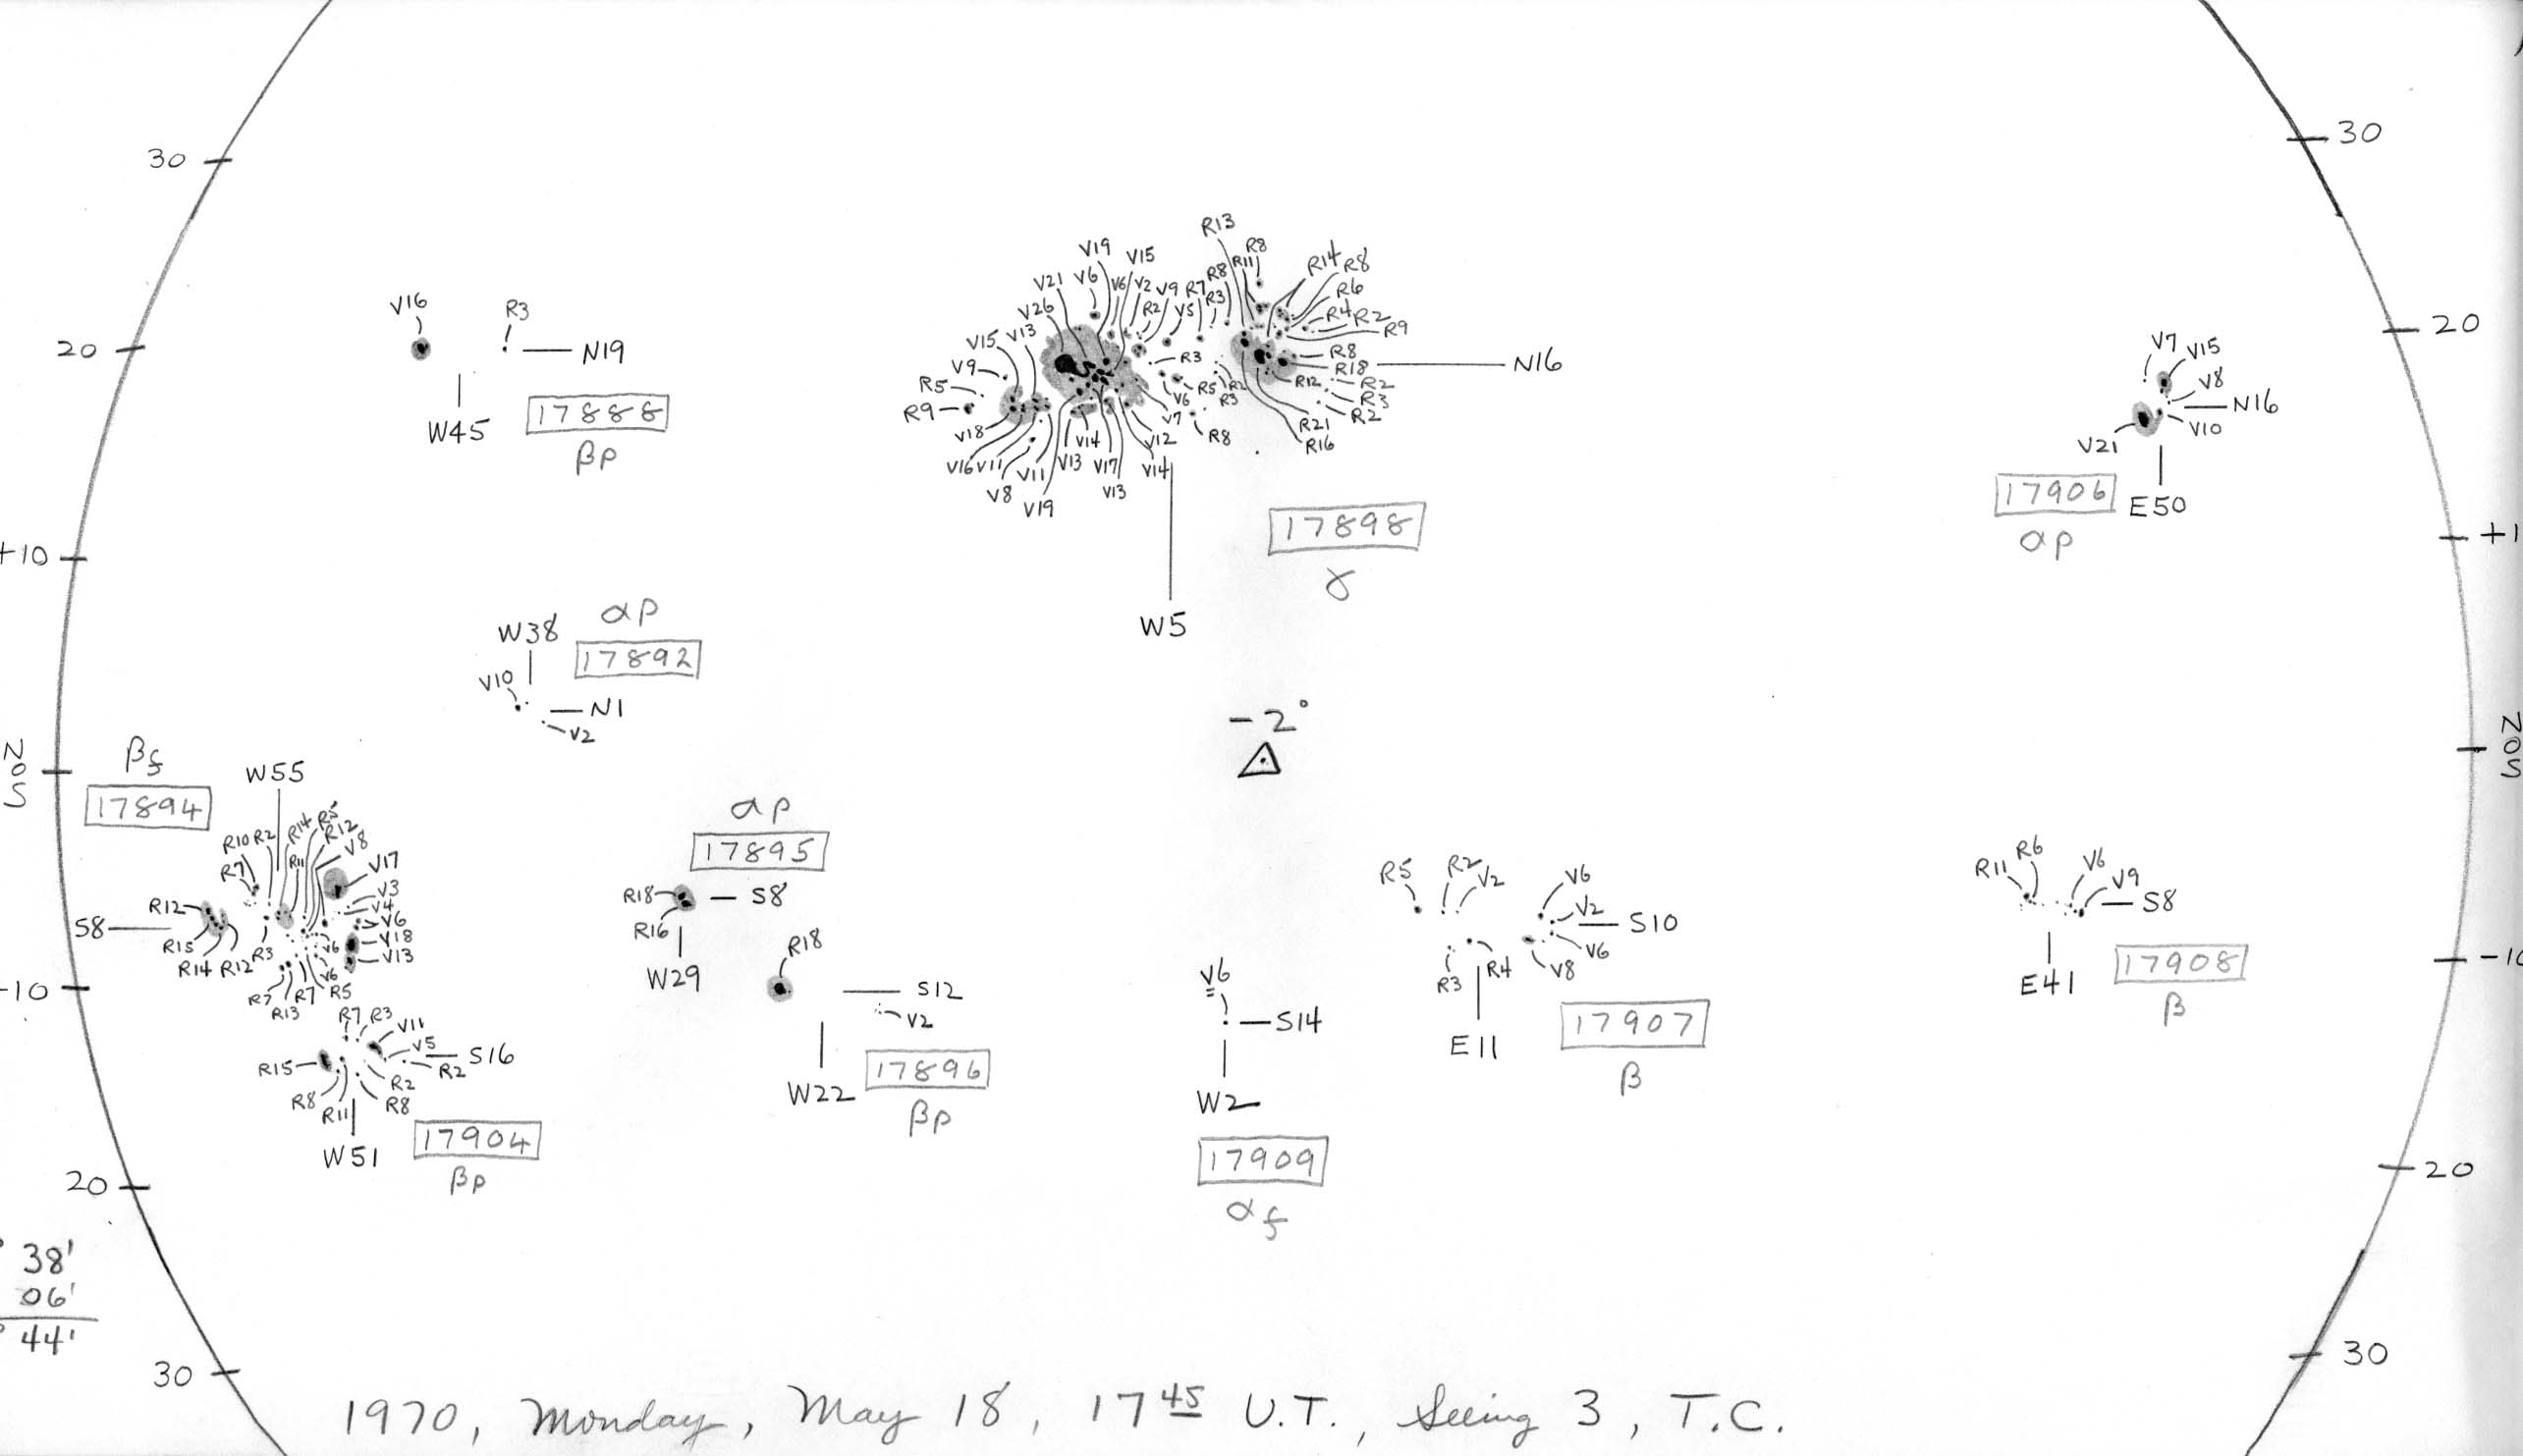 30
20
+10
N
O
S
-10
20
30
38'
06'
44'
30
20
+1
N
O
S
-10
20
30
V16
R3
N19
W45
17888
βp
R13
R8
V19
V15
R11
R14
R8
V21
V6
V6
V2
V9
R7
R8
R3
R6
V26
R2
V5
R4
R2
R9
V15
V13
V9
R3
R8
R18
N16
R5
R5
R2
R12
R2
R9
V6
R3
R3
V7
R2
V18
V14
V12
R8
R21
R16
V16
V11
V11
V13
V17
V14
V8
V13
V19
W5
17898
γ
V7
V15
V8
N16
V10
V21
17906
E50
αp
αp
W38
17892
V10
N1
V2
-2°
βf
W55
17894
R10
R2
R14
R5
R12
V8
R7
R11
V17
V3
V4
R12
V6
S8
V18
R15
R3
V6
V13
R14
R12
V6
R7
R7
R5
R13
R7
R3
V11
V5
S16
R15
R2
R2
R8
R11
R8
W51
17904
βp
αp
17895
R18
S8
R16
W29
R18
S12
V2
W22
17896
βp
V6
S14
W2
17909
αf
R5
R2
V2
V6
V2
S10
V6
R3
R4
V8
E11
17907
β
R11
R6
V6
V9
S8
E41
17908
β
1970, Monday, May 18, 17 45 U.T., Seeing 3, T.C.